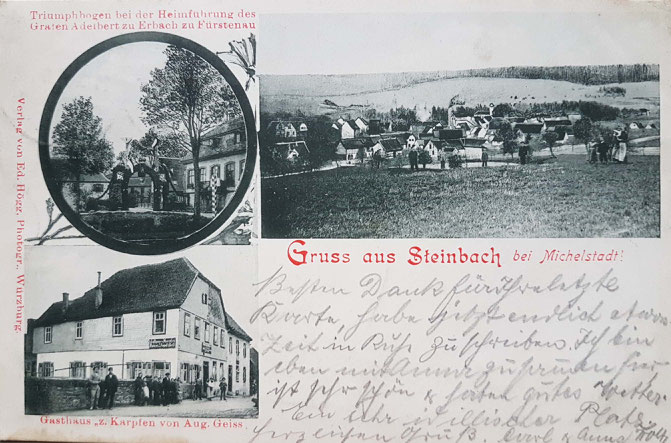 Triumphbogen bei der Heimführung des
Grafen Adelbert zu Erbach zu Fürstenau
Verlag von Ed. Högg, Photogr., Würzburg.
Gruss aus Steinbach bei Michelstadt!
Besten Dank für Ihre letzte
Karte, habe jetzt endlich etwas
Zeit in Ruhe zu schreiben. Ich bin
eben mit Anna
ist sehr schön & haben gutes Wetter.
Ein sehr idillischer Platz
herzlichen Gruß Anna
Gasthaus „z. Karpfen von Aug. Geiss.